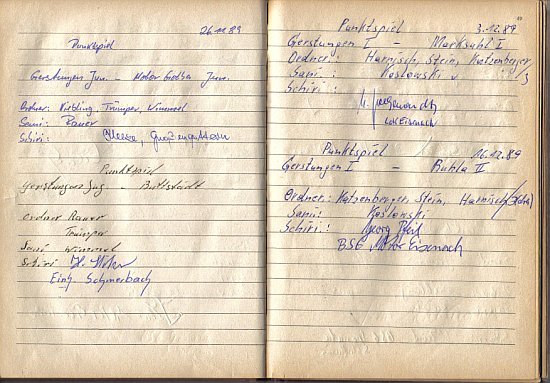 26.11.89
Punktspiel
Gerstungen Jun. - Motor Gotha Jun.
Ordner: Kietling, Trümper, Wimmel
Sani: Rauer
Schiri:
Punktspiel
Gerstungen Jug - Buttstädt
Ordner Rauer
Trümper
Sani Wimmel
Schiri
Einh. Schmerbach
Punktspiel 3.12.89
Gerstungen I - Marksuhl I
Ordner: Harnisch, Stein, Katzenberger
Sani: Koslowski
Schiri:
Eisenach
Punktspiel 16.12.89
Gerstungen I - Ruhla II
Ordner: Katzenberger, Stein, Harnisch
Sani: Koslowski
Schiri: Georg
BSG Motor Eisenach